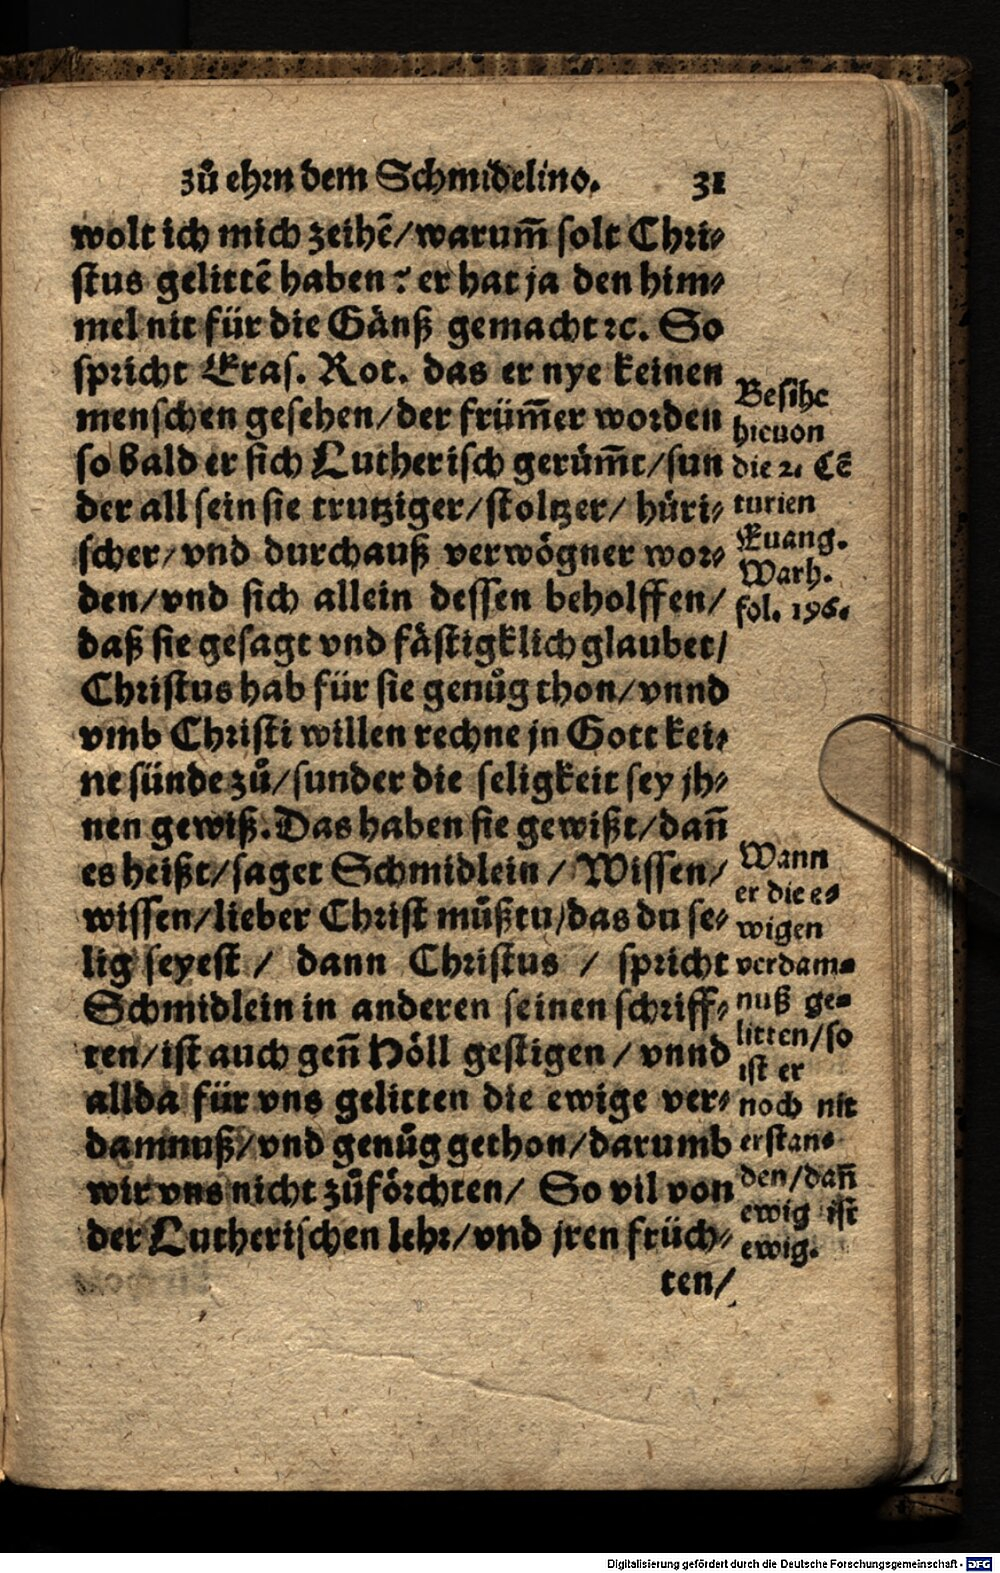 zů ehrn dem Schmidelino. 31
wolt ich mich zeihē/warum̄ solt Chri⸗
stus gelittē haben? er hat ja den him⸗
mel nit für die Gänß gemacht ꝛc. So
spricht Eras. Rot. das er nye keinen
menschen gesehen/der früm̄er worden
so bald er sich Lutherisch gerům̄t/sun
der all sein sie trutziger/stoltzer/ hüri⸗
scher/vnd durchauß verwögner wor⸗
den/vnd sich allein dessen beholffen/
daß sie gesagt vnd fästigklich glaubet/
Christus hab für sie genůg thon/vnnd
vmb Christi willen rechne jn Gott kei⸗
ne sünde zů/sunder die seligkeit sey jh⸗
nen gewiß. Das haben sie gewißt/dañ
es heißt/saget Schmidlein/ Wissen/
wissen/lieber Christ můßtu/das du se⸗
lig seyest/ dann Christus / spricht
Schmidlein in anderen seinen schriff⸗
ten/ist auch geñ Höll gestigen/ vnnd
allda für vns gelitten die ewige ver⸗
damnuß/vnd genůg gethon/darumb
wir vns nicht zůförchten/ So vil von
der Lutherischen lehr/vnd jren früch⸗
ten/
Besihe
hieuon
die 2. Cē
turien
Euang.
Warh.
fol. 196.
Wann
er die e⸗
wigen
verdam⸗
nuß ge⸗
litten/so
ist er
noch nit
erstan⸗
den/dañ
ewig ist
ewig.
Digitalisierung gefördert durch die Deutsche Forschungsgemeinschaft - DFG